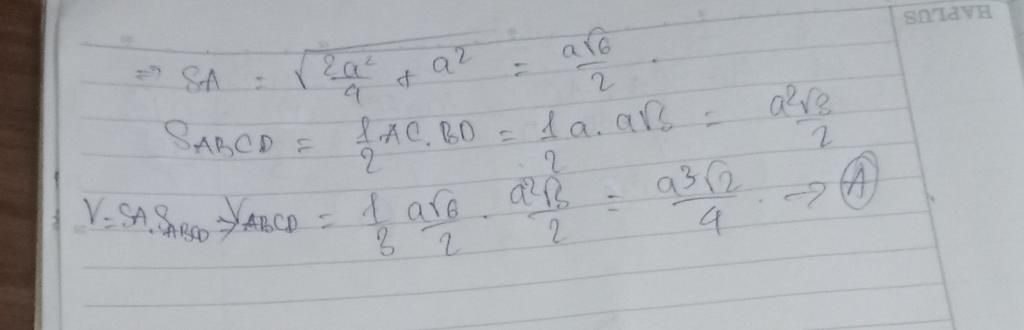 HAPLUS
=> SA = √(2a²/4 + a²) = a√6/2.
S_ABCD = 1/2 AC.BD = 1/2 a.a√3 = a²√3/2
V=SA.S_ABCD => V_ABCD = 1/3 a√6/2 . a²√3/2 = a³√2/4. -> Ⓐ